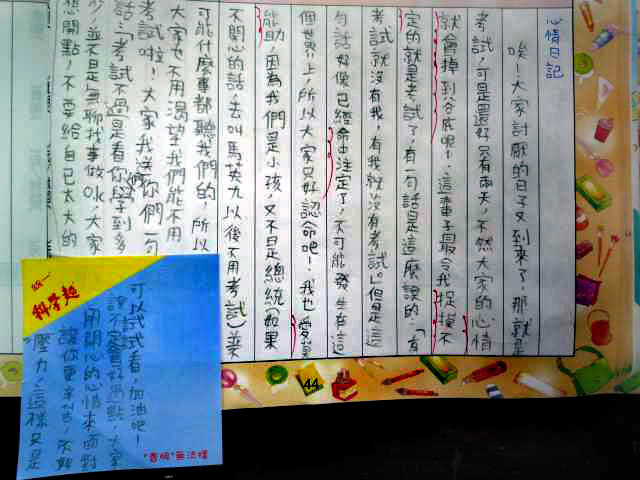 心情日記
唉！大家討厭的日子又到來了，那就是
考試，可是還好只有兩天，不然大家的心情
就會掉到谷底呢！這輩子最令我捉摸不
定的就是考試了，有一句話是這麼說的：「有
考試就沒有我，有我就沒有考試。」但是這
句話好像已經命中注定了，不可能發生在這
個世界上，所以大家只好認命吧！我也愛莫
能助，因為我們是小孩，又不是總統（如果
不開心的話，去叫馬英九以後不用考試）要
可能什麼事都聽我們的，所以
大家也不用渴望我們能不用
考試啦！大家我送你們一句
話：「考試不過是看你學到多
少，並不是無聊找事做。」大家
想開點，不要給自己太大的
科學麵
可以試試看，加油吧！
大家
用開心的心情來面對
讓你更
壓力，這樣又是
"香脆"無法擋
44